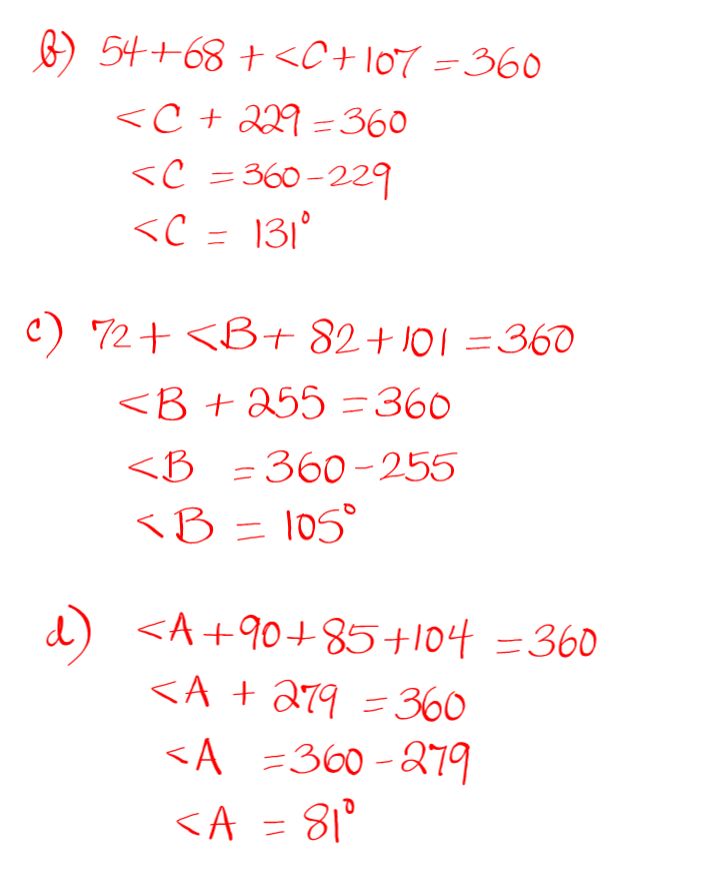 b) 54+68 + <C + 107 = 360
<C + 229 = 360
<C = 360 - 229
<C = 131°
c) 72 + <B + 82 + 101 = 360
<B + 255 = 360
<B = 360 - 255
<B = 105°
d) <A + 90 + 85 + 104 = 360
<A + 279 = 360
<A = 360 - 279
<A = 81°